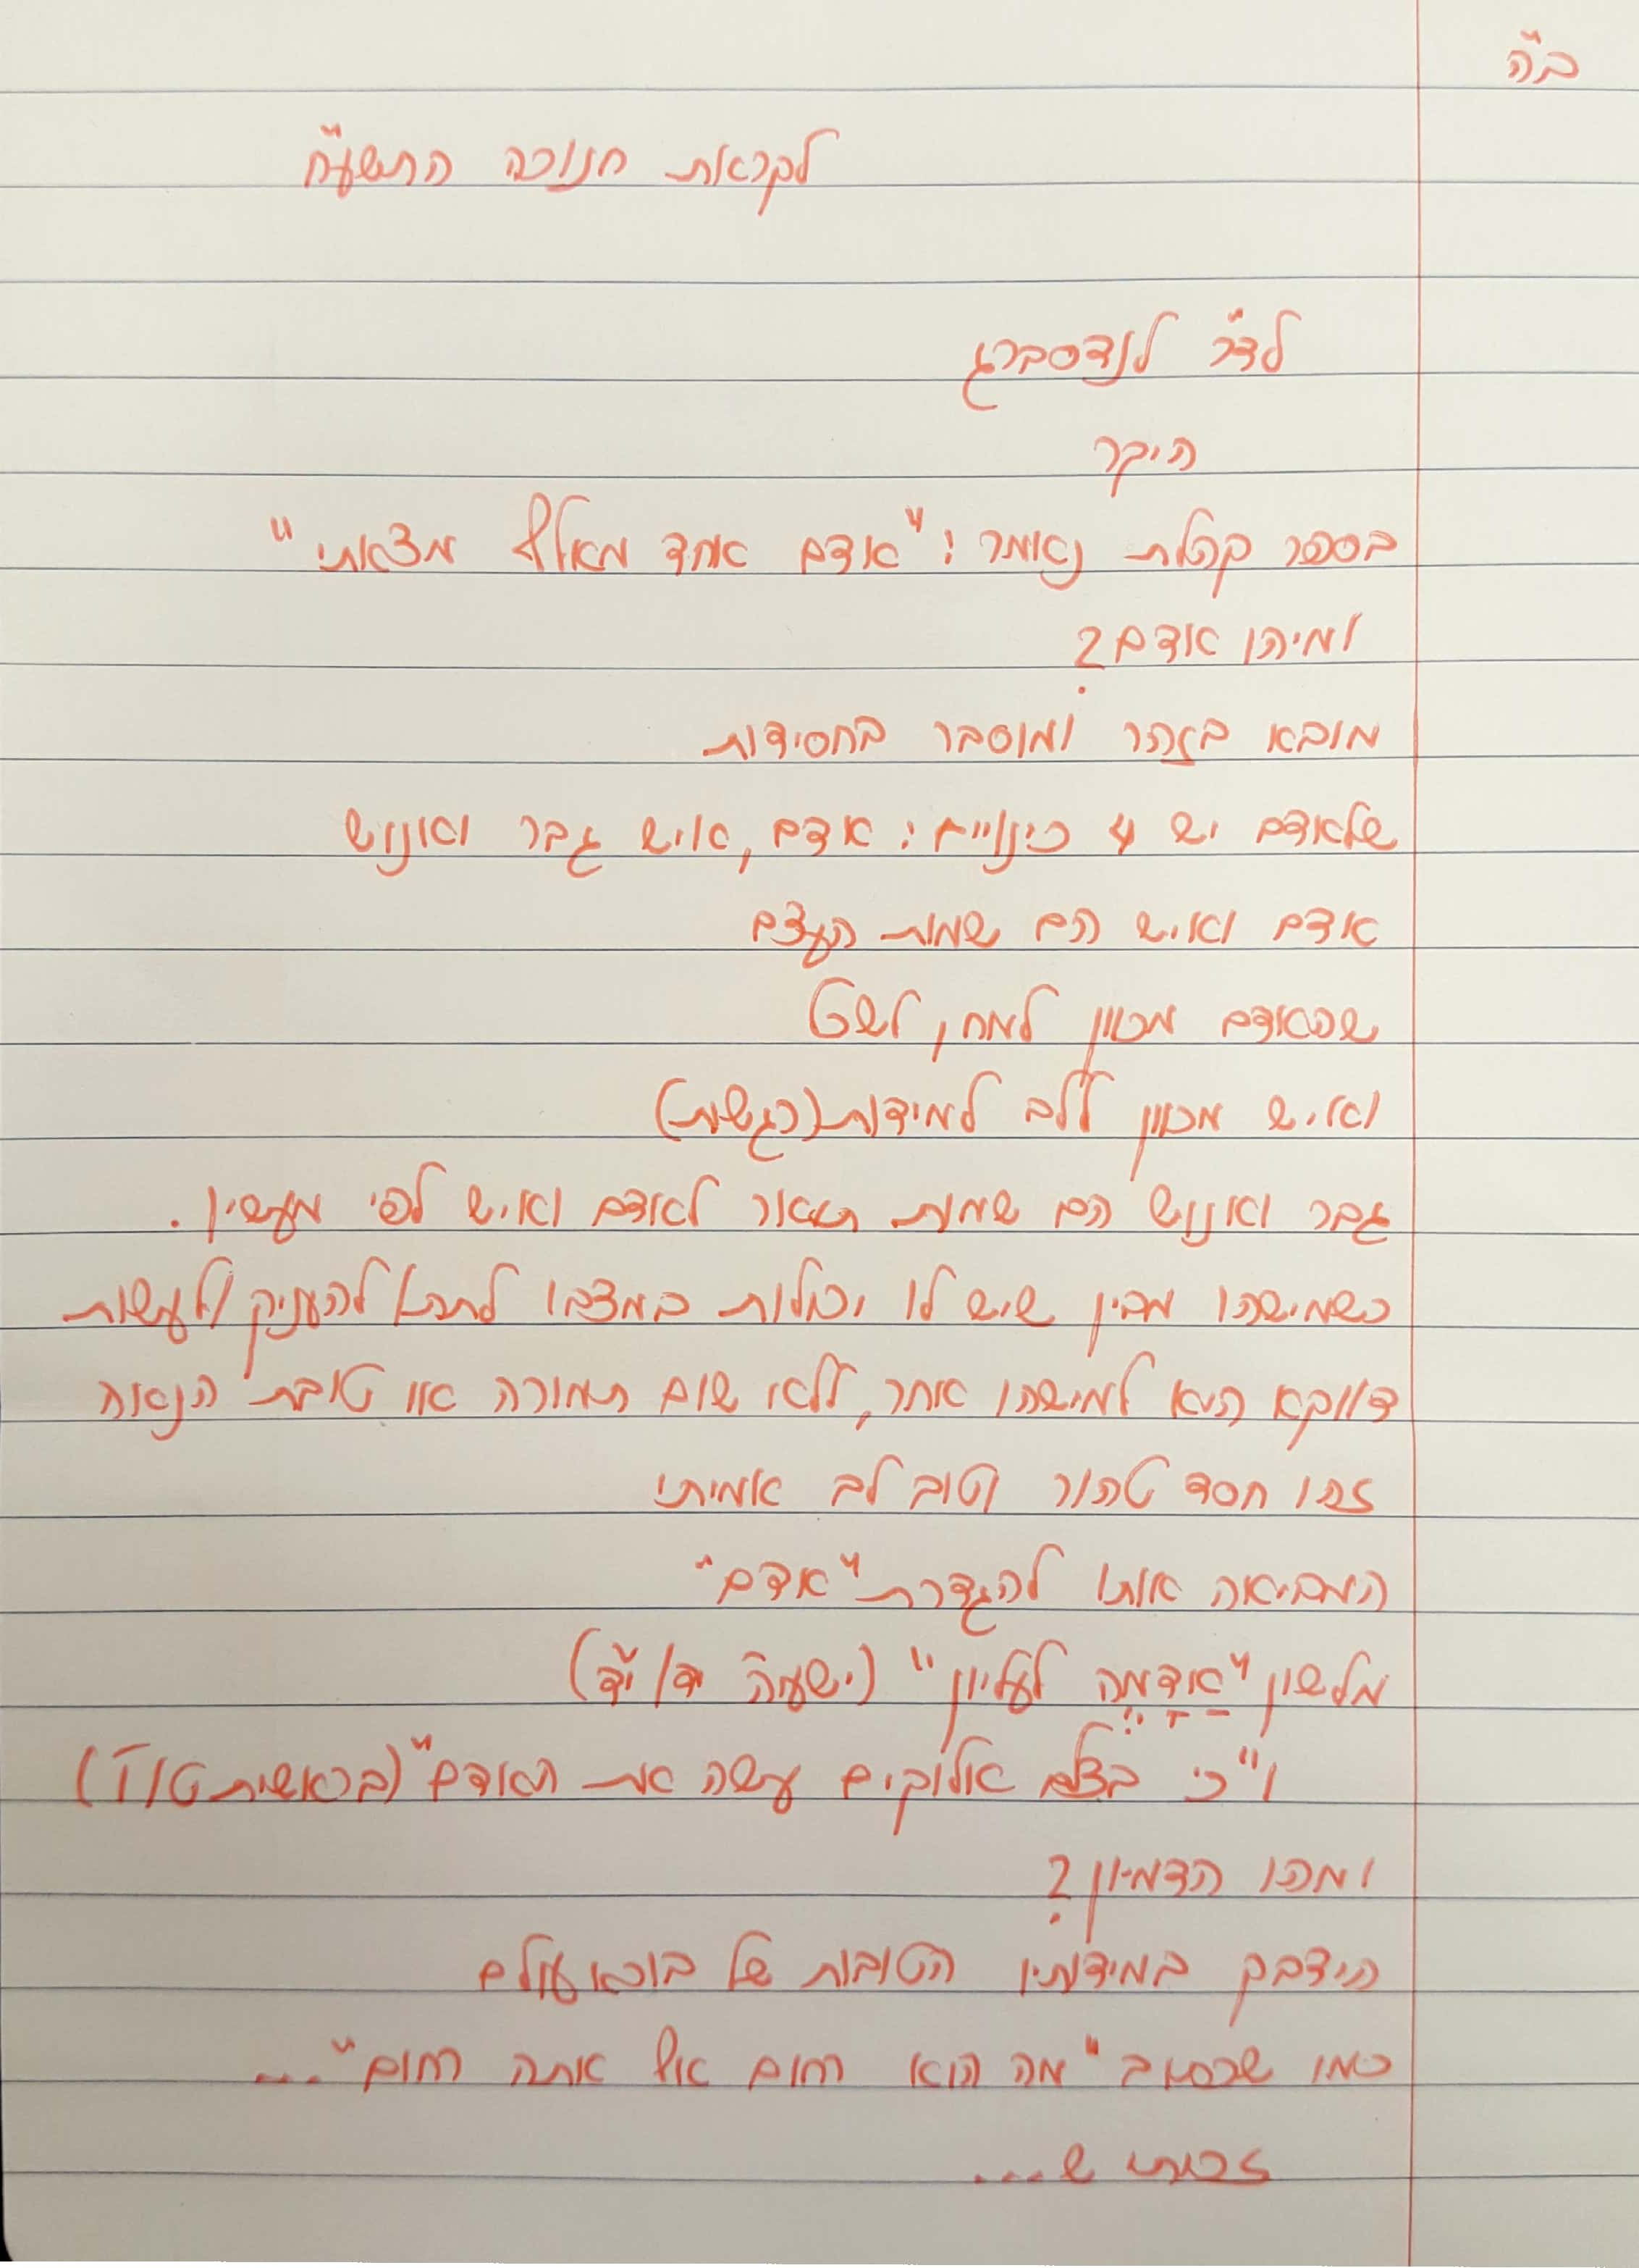 ב"ה
לקראת חנוכה התשע"ח
לד"ר לנדסברג
היקר
בספר קהלת נאמר: "אדם אחד מאלף מצאתי"
ומיהו אדם?
מובא בזהר ומוסבר בחסידות
שלאדם יש 4 כינויים: אדם, איש גבר ואנוש
אדם ואיש הם שמות העצם
שהאדם מכוון למח, לשכל
ואיש מכוון ללב למידות (רגשות)
גבר ואנוש הם שמות תואר לאדם ואיש לפי מעשיו.
כשמישהו מבין שיש לו יכולות במצבו לתת להעניק ולעשות
דווקא היא למישהו אחר, ללא שום תמורה או טובת הנאה
זהו חסד טהור וטוב לב אמיתי
המביאה אותו להגדרת "אדם"
מלשון "אֲדַמֶּה לעליון" (ישעיה יד/ י"ד)
ו"כי בצלם אלוקים עשה את האדם" (בראשית ט/ו)
ומהו הדמיון?
הידבק במידותיו הטובות של בורא עולם
כמו שכתוב "מה הוא רחום אף אתה רחום"...
זכותי ש...